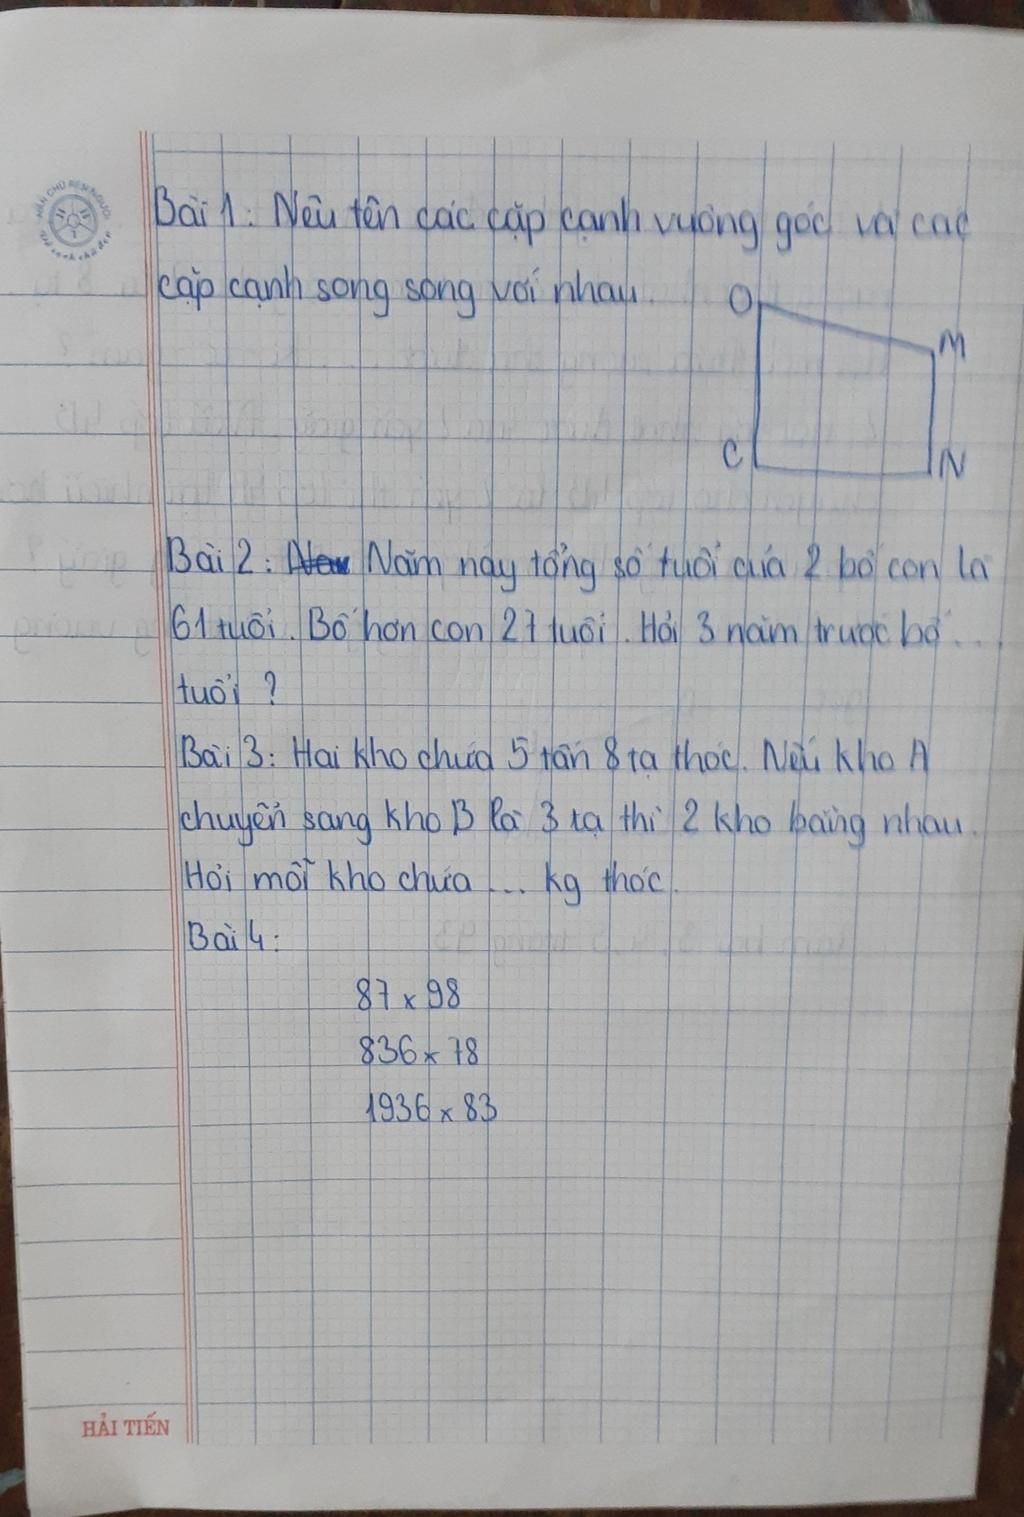 Bài 1: Nêu tên các cặp cạnh vuông góc và các
cặp cạnh song song với nhau.
O
M
C
N
Bài 2: Năm nay tổng số tuổi của 2 bố con là
61 tuổi. Bố hơn con 27 tuổi. Hỏi 3 năm trước bố ...
tuổi ?
Bài 3: Hai kho chứa 5 tấn 8 tạ thóc. Nếu kho A
chuyển sang kho B là 3 tạ thì 2 kho bằng nhau.
Hỏi mỗi kho chứa ... kg thóc.
Bài 4:
87 x 98
836 x 78
1936 x 83
HẢI TIẾN